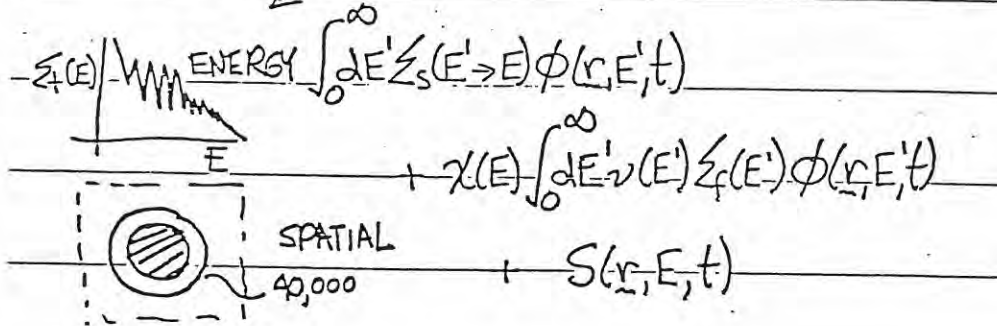 Σt(E) ENERGY ∫₀^∞ dE' Σs(E'→E) φ(r,E',t)
E
+ χ(E) ∫₀^∞ dE' ν(E') Σf(E') φ(r,E',t)
SPATIAL
40,000
+ S(r,E,t)